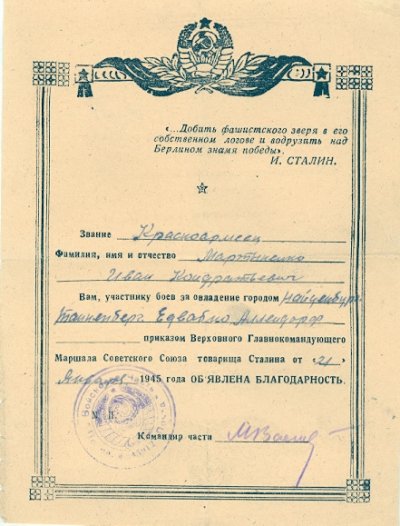 «...Добить фашистского зверя в его
собственном логове и водрузить над
Берлином знамя победы».
И. СТАЛИН.
Звание Красноармеец
Фамилия, имя и отчество Мартыненко
Иван Кондратьевич
Вам, участнику боев за овладение городом Найденбург
Танненберг Едвабно Аллендорф
приказом Верховного Главнокомандующего
Маршала Советского Союза товарища Сталина от «21»
Января 1945 года ОБ'ЯВЛЕНА БЛАГОДАРНОСТЬ.
М. П.
Командир части